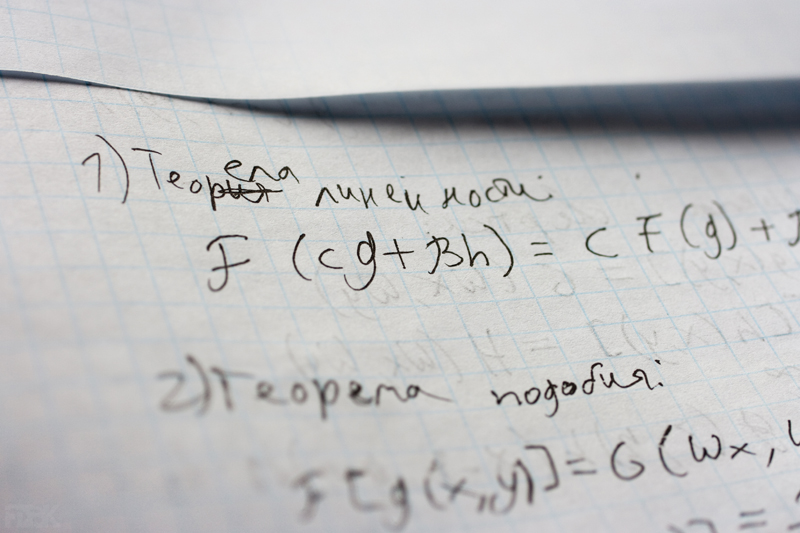 1) Теорема линейности:
F (cg + Bh) = C F(g) +
2) Теорема подобия:
F[g(x,y)] = G(Wx,
=